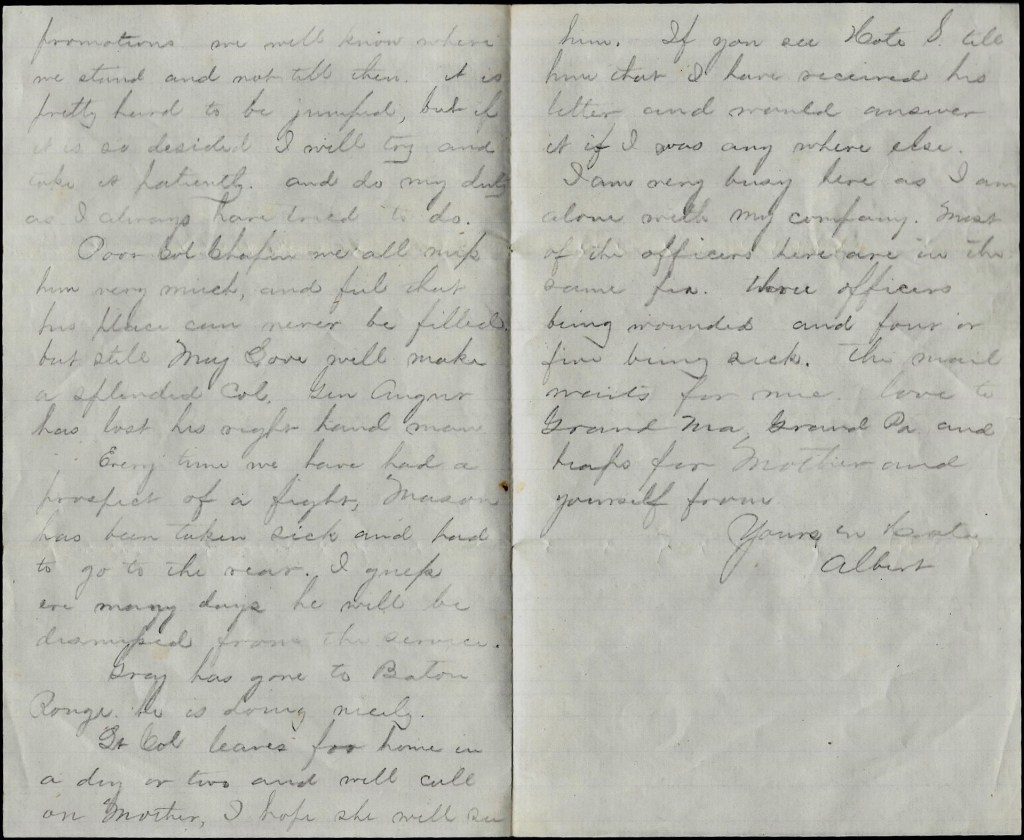 promotions we will know where
we stand and not till then. it is
pretty hard to be jumped, but if
it is so desided I will try and
take it patiently. and do my duty
as I always have tried to do.
Poor Col Chapin we all miss
him very much, and ful that
his place can never be filled
but still Maj Love will make
a splended Col. Gen Augur
has lost his right hand man
Every time we have had a
prospect of a fight, Mason
has been taken sick and had
to go to the rear. I guess
ere many days he will be
dismissed from the service.
Gray has gone to Baton
Rouge. he is doing nicely.
Lt Col leaves for home in
a day or two and will call
on Mother, I hope she will see
him. If you see Hote S. tell
him that I have received his
letter and would answer
it if I was any where else.
I am very busy here as I am
alone with my company. Most
of the officers here are in the
same fix. three officers
being wounded and four or
five being sick. The mail
waits for me. love to
Grand Ma, Grand Pa. and
heaps for Mother and
yourself from
Yours in haste
Albert